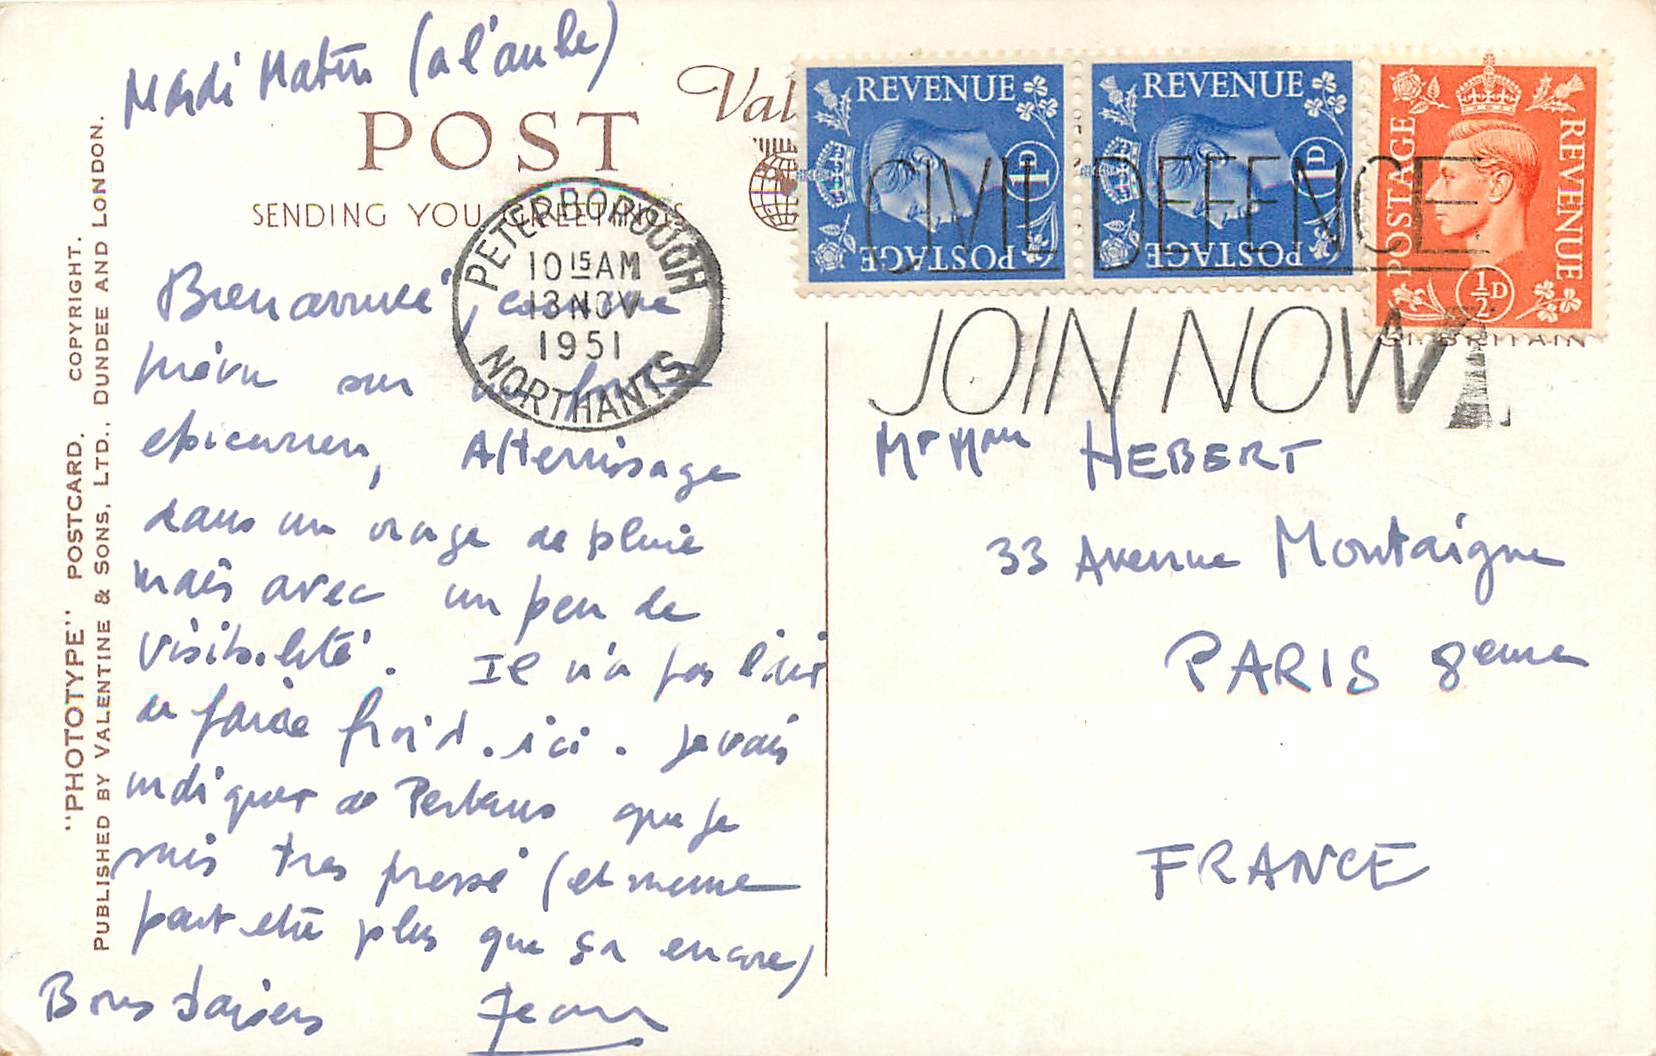 Mardi Matin (a l'aube)
POST
Val
SENDING YOU GREETINGS
"PHOTOTYPE" POSTCARD. COPYRIGHT.
PUBLISHED BY VALENTINE & SONS, LTD., DUNDEE AND LONDON.
REVENUE
1D
POSTAGE
REVENUE
1D
POSTAGE
POSTAGE
REVENUE
½D
PETERBOROUGH
10 15 AM
13 NOV
1951
NORTHANTS
CIVIL DEFENCE
JOIN NOW!
GT. BRITAIN
Bien arrivé, comme
prévu sur
epicurien, Atterrissage
dans un orage de pluie
mais avec un peu de
visibilité. Il n'a pas l'air
de faire froid. ici. Je vais
indiquer a que je
suis tres pressé (et meme
peut etre plus que ça encore)
Bons baisers Jean
Mr Mme HEBERT
33 Avenue Montaigne
PARIS 8eme
FRANCE